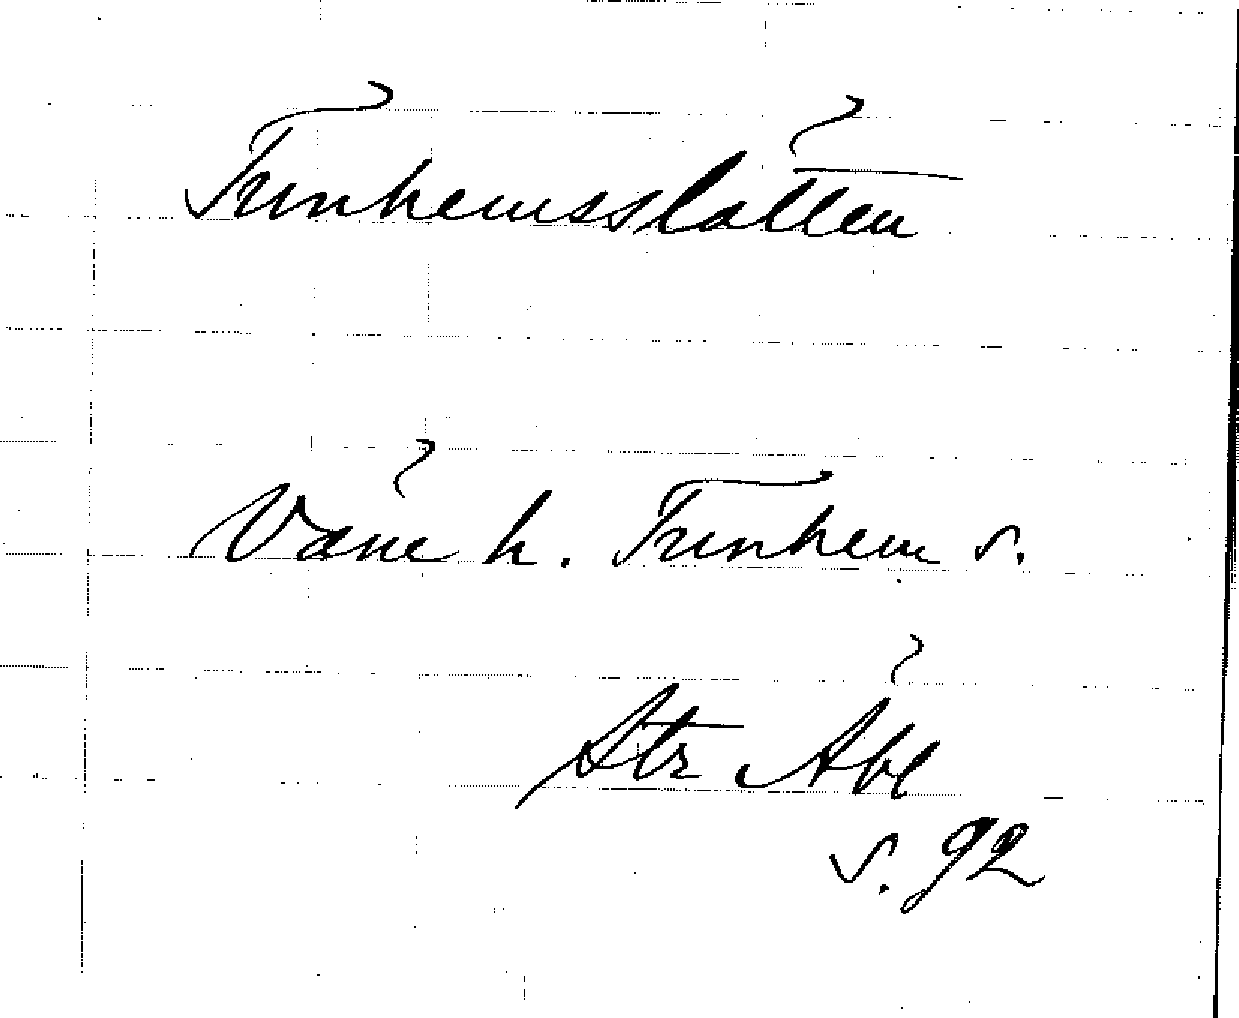 Tunhemsslätten
Väne h. Tunhem s.
Str Äbl
s. 92